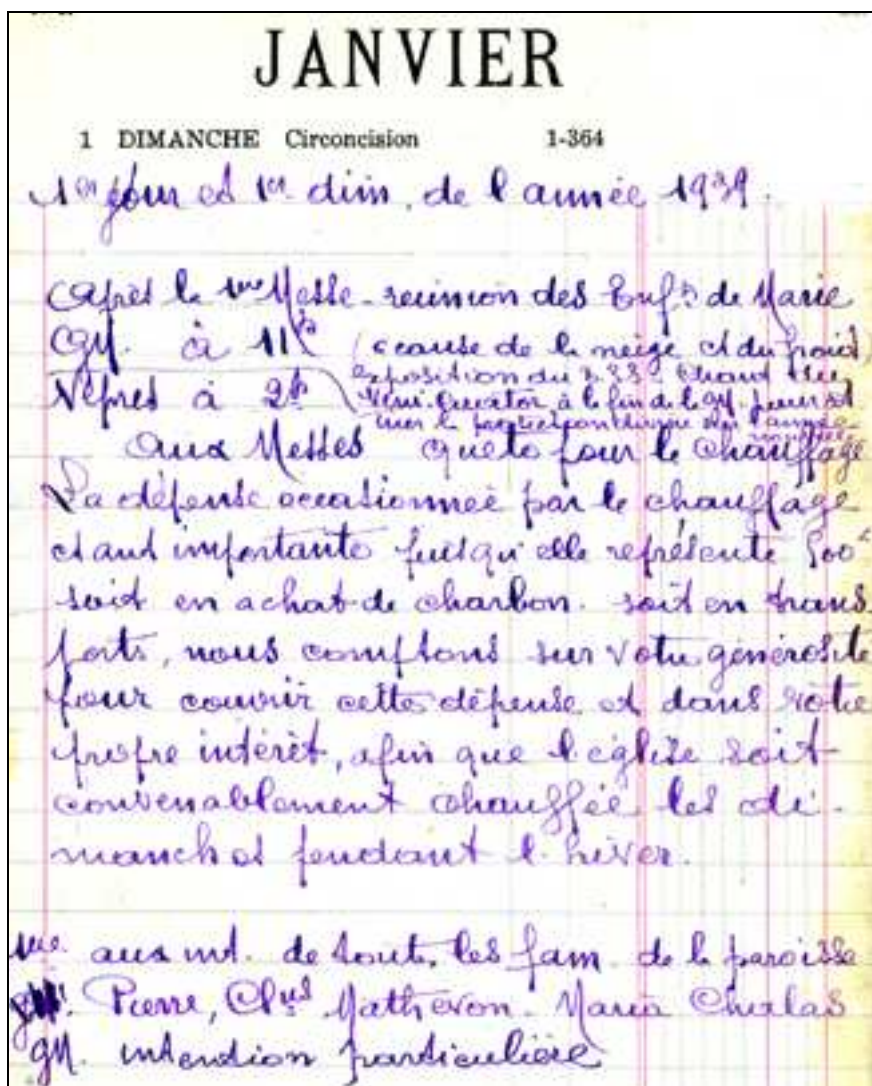 JANVIER
1 DIMANCHE Circoncision 1-364
1er jour et 1er dim. de l'année 1939.
Après la 1re Messe - reunion des Enfts de Marie
GM. à 11h (à cause de la neige et du froid)
Vêpres à 2h exposition du S. S. - Chant du
Veni Creator à la fin de la GM. pour
la protection divine sur l'année
nouvelle
Aux Messes quete pour le chauffage
La dépense occasionnée par le chauffage
étant importante puisqu'elle représente 500f
soit en achat de charbon. soit en trans
ports, nous comptons sur votre générosité
pour couvrir cette dépense et dans votre
propre intérêt, afin que l'église soit
convenablement chauffée les di-
manches pendant l'hiver.
1re aux int. de toutes les fam. de la paroisse
Pierre, Clus Mathevon. Maria
GM. intention particulière